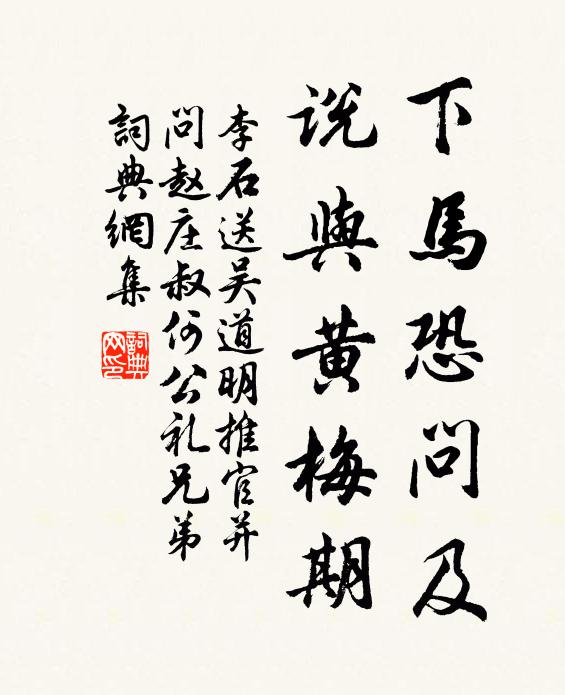 下馬恐問及
説與黄梅期
李石送吴道明推官并
問赵庄叔何公礼兄弟
詞典網集
詞典網印